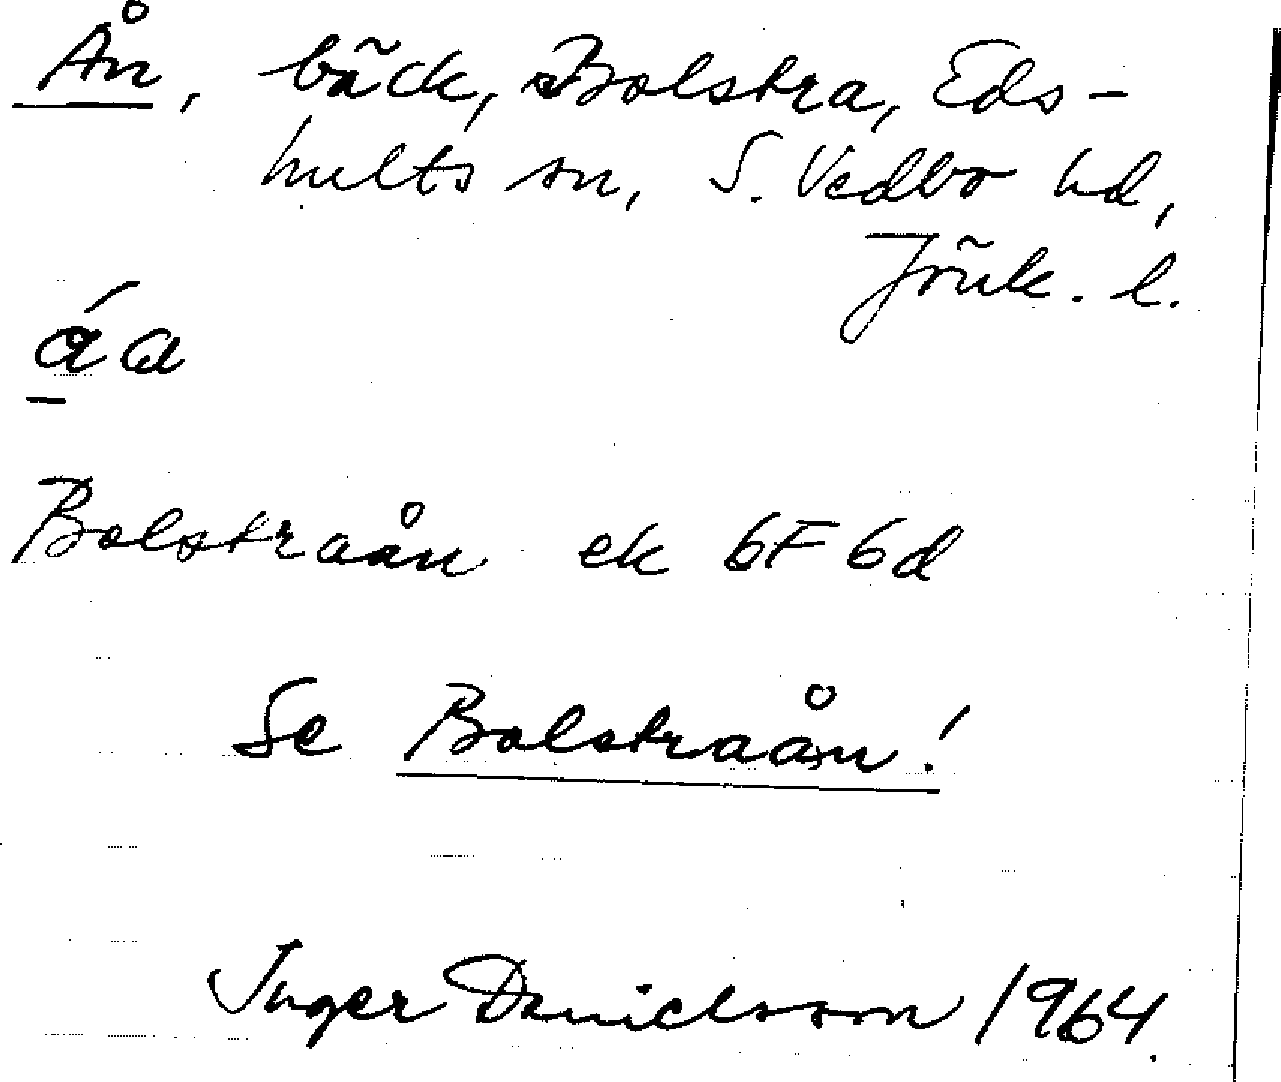 Ån, bäck, Bolstra, Eds-
hults sn, S. Vedbo hd,
Jönk. l.
áa
Bolstraån ek 6F6d
Se Bolstraån!
Inger Danielsson 1964.